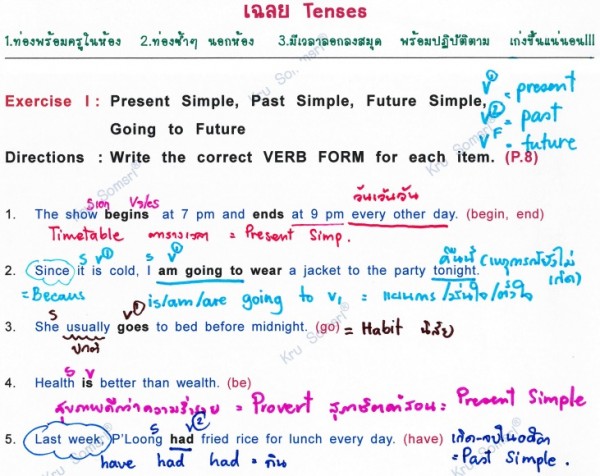 เฉลย Tenses
1.ท่องพร้อมครูในห้อง 2.ท่องซ้ำๆ นอกห้อง 3.มีเวลาลอกลงสมุด พร้อมปฏิบัติตาม เก่งขึ้นแน่นอน!!!
Exercise I : Present Simple, Past Simple, Future Simple,
Going to Future
V① = present
V② = past
VF = future
Directions : Write the correct VERB FORM for each item. (P.8)
Sing V s/es วันเว้นวัน
1. The show begins at 7 pm and ends at 9 pm every other day. (begin, end)
Timetable ตารางเวลา = Present Simp.
S V① S V① คืนนี้ (เหตุการณ์ยังไม่เกิด)
2. Since it is cold, I am going to wear a jacket to the party tonight.
= Becaus is/am/are going to V1 = แผนการ/
S V①
3. She usually goes to bed before midnight. (go) = Habit นิสัย
ปกติ
S V
4. Health is better than wealth. (be)
สุขภาพดีกว่าความร่ำรวย = Provert สุภาษิตคำสอน = Present Simple
S V②
5. Last week, P'Loong had fried rice for lunch every day. (have) เกิด-จบในอดีต
have had had = กิน = Past Simple.
Kru Somsri®